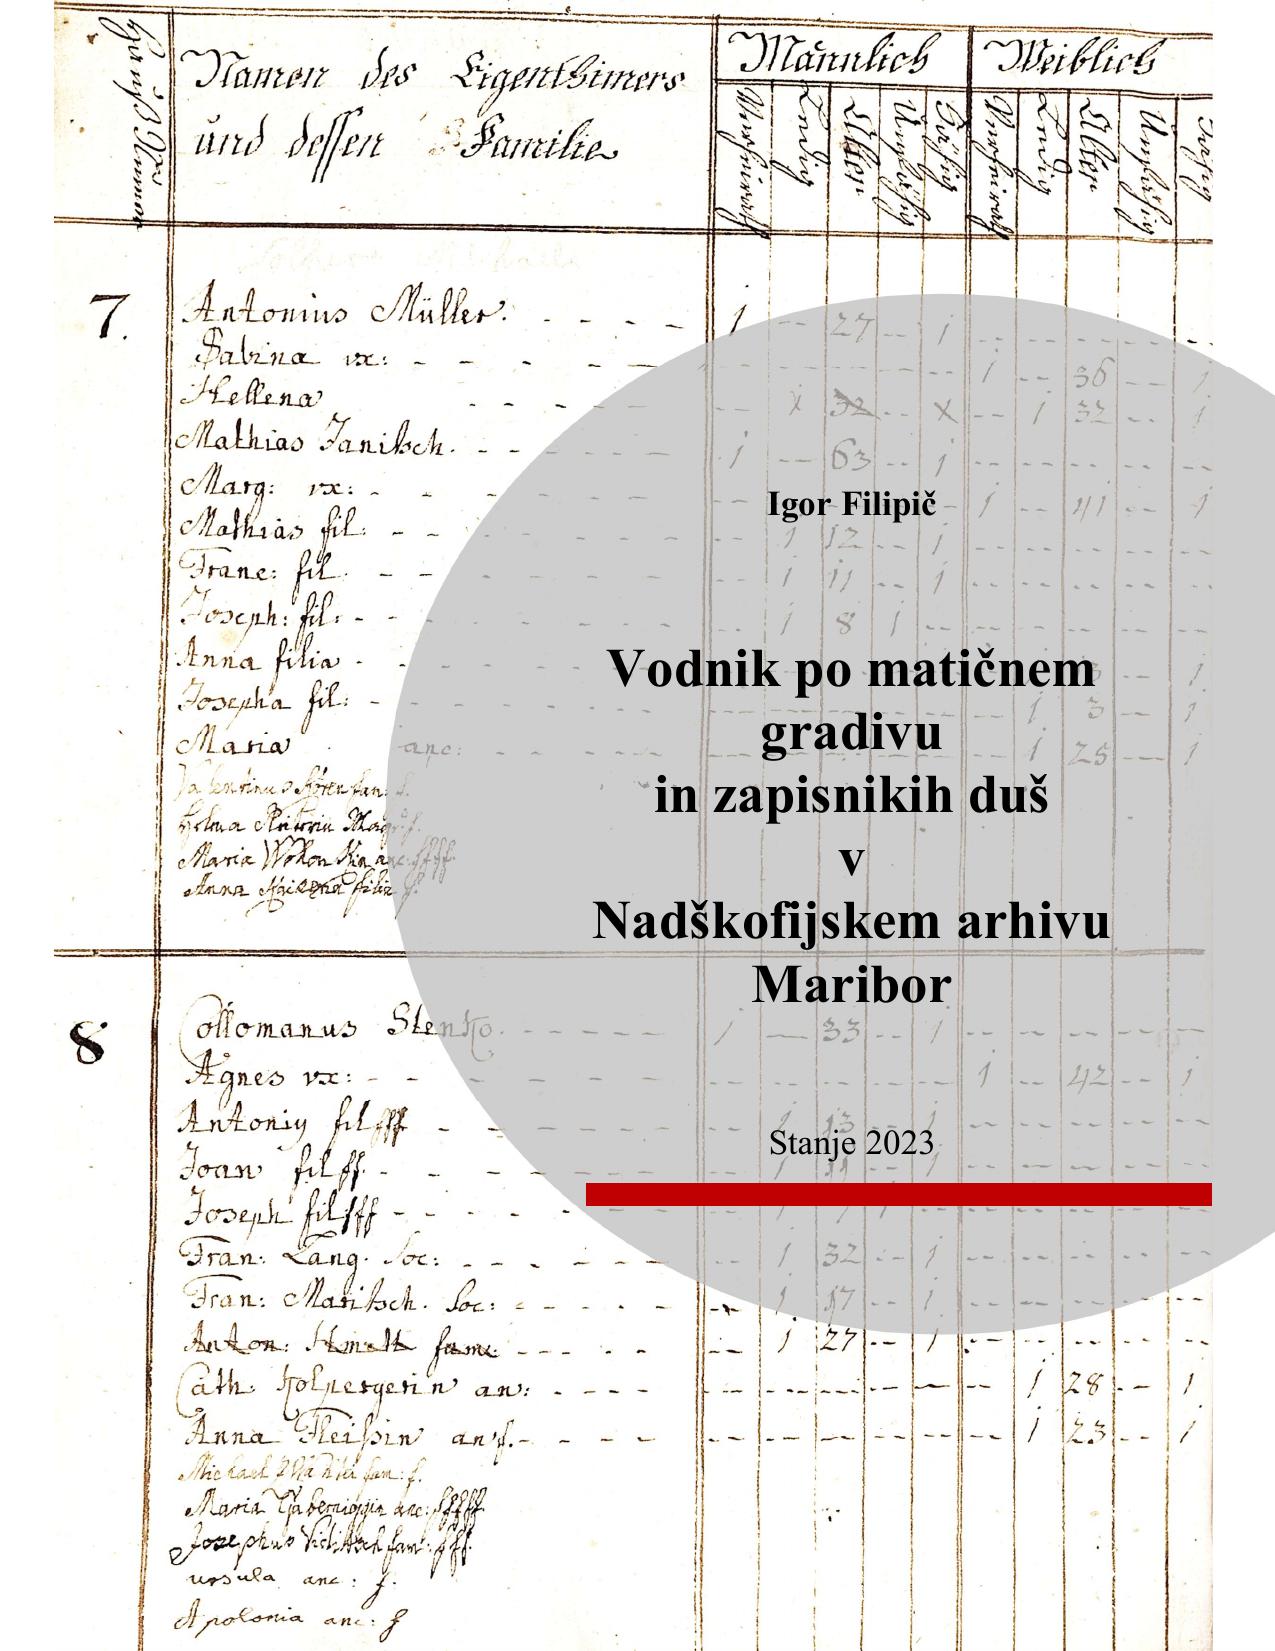 Namen des Eigenthimers
und dessen Familie
Männlich
Weiblich
Ledig
Alter
Ledig
Alter
7.
Antonius Müller. 1 -- 27 -- 1
Sabina ux: 1 -- 36 -- 1
Hellena 32 1 32 -- 1
Mathias Janitsch. 1 -- 63 -- 1
Marg: ux: 1 -- 41 -- 1
Mathias fil: 1 12 -- 1
Franc: fil: 1 11 -- 1
Joseph: fil: 1 8 1
Anna filia 1
Josepha fil: 1 3 -- 1
Maria anc: 1 25 -- 1
Igor Filipič
Vodnik po matičnem
gradivu
in zapisnikih duš
v
Nadškofijskem arhivu
Maribor
Stanje 2023
8
Collomanus 1 -- 33 -- 1
Agnes ux: 1 -- 42 -- 1
Antoniy fil 1 13 -- 1
Joan fil
Joseph fil
Fran: Lang. Soc: 1 32 -- 1
Fran: Maritsch. Soc: 1 17 -- 1
Anton: 1 27 -- 1
Cath: Kolpergerin an: 1 28 -- 1
Anna 1 23 -- 1
Michael fam: f.
Maria anc:
Josephus fam:
ursula anc: f.
Apolonia anc: f